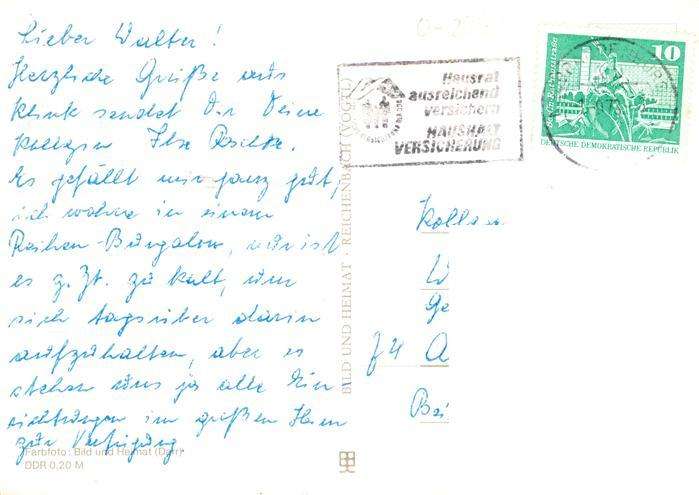 Lieber Walter!
Herzliche Grüße aus
Klink sendet Dir Deine
Kollegin Ilse
Es gefällt mir ganz gut,
ich wohne in einem
Reihen-Bungalow, nur ist
es z. Zt. zu kalt, um
sich tagsüber darin
aufzuhalten, aber es
stehen uns ja alle Ein
richtungen im großen Heim
zur Verfügung
Farbfoto: Bild und Heimat (Dörr)
DDR 0,20 M
BILD UND HEIMAT · REICHENBACH (VOGTL)
Hausrat
ausreichend
versichern
HAUSHALT
VERSICHERUNG
10
DEUTSCHE DEMOKRATISCHE REPUBLIK
W
Ge
A